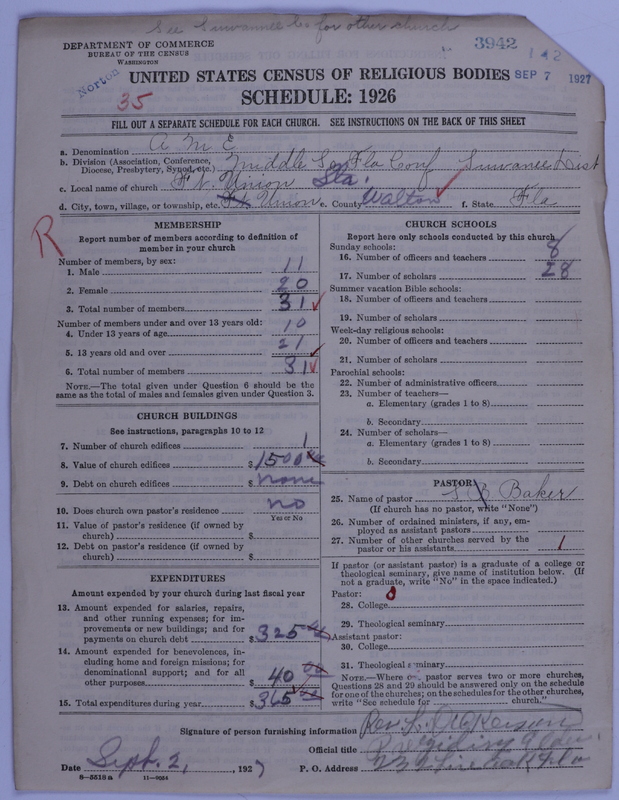 See Suwannee Co for other church
DEPARTMENT OF COMMERCE
BUREAU OF THE CENSUS
WASHINGTON
3942
142
Norton
35
SEP 7 1927
UNITED STATES CENSUS OF RELIGIOUS BODIES
SCHEDULE: 1926
FILL OUT A SEPARATE SCHEDULE FOR EACH CHURCH. SEE INSTRUCTIONS ON THE BACK OF THIS SHEET
a. Denomination A M E
b. Division (Association, Conference, Diocese, Presbytery, Synod, etc.) Middle Fla Conf Suwanee Dist
c. Local name of church Ft. Union Sta.
d. City, town, village, or township, etc. Ft. Union e. County Walton f. State Fla
R
MEMBERSHIP
Report number of members according to definition of
member in your church
Number of members, by sex:
1. Male 11
2. Female 20
3. Total number of members 31
Number of members under and over 13 years old:
4. Under 13 years of age 10
5. 13 years old and over 21
6. Total number of members 31
NOTE.—The total given under Question 6 should be the
same as the total of males and females given under Question 3.
CHURCH BUILDINGS
See instructions, paragraphs 10 to 12
7. Number of church edifices 1
8. Value of church edifices $1500
9. Debt on church edifices $none
10. Does church own pastor's residence no
Yes or No
11. Value of pastor's residence (if owned by
church) $
12. Debt on pastor's residence (if owned by
church) $
EXPENDITURES
Amount expended by your church during last fiscal year
13. Amount expended for salaries, repairs,
and other running expenses; for im-
provements or new buildings; and for
payments on church debt $325
14. Amount expended for benevolences, in-
cluding home and foreign missions; for
denominational support; and for all
other purposes $40 00
15. Total expenditures during year $365
CHURCH SCHOOLS
Report here only schools conducted by this church
Sunday schools:
16. Number of officers and teachers 8
17. Number of scholars 28
Summer vacation Bible schools:
18. Number of officers and teachers
19. Number of scholars
Week-day religious schools:
20. Number of officers and teachers
21. Number of scholars
Parochial schools:
22. Number of administrative officers
23. Number of teachers—
a. Elementary (grades 1 to 8)
b. Secondary
24. Number of scholars—
a. Elementary (grades 1 to 8)
b. Secondary
PASTOR
25. Name of pastor S B Baker
(If church has no pastor, write "None")
26. Number of ordained ministers, if any, em-
ployed as assistant pastors
27. Number of other churches served by the
pastor or his assistants 1
If pastor (or assistant pastor) is a graduate of a college or
theological seminary, give name of institution below. (If
not a graduate, write "No" in the space indicated.)
Pastor: 0
28. College
29. Theological seminary
Assistant pastor:
30. College
31. Theological seminary
NOTE.—Where one pastor serves two or more churches,
Questions 28 and 29 should be answered only on the schedule
for one of the churches; on the schedules for the other churches,
write "See schedule for church."
Signature of person furnishing information Rev.
Official title Presiding Elder
Date Sept. 2, 1927 P. O. Address Live Oak Fla
8—5518 a 11—9054